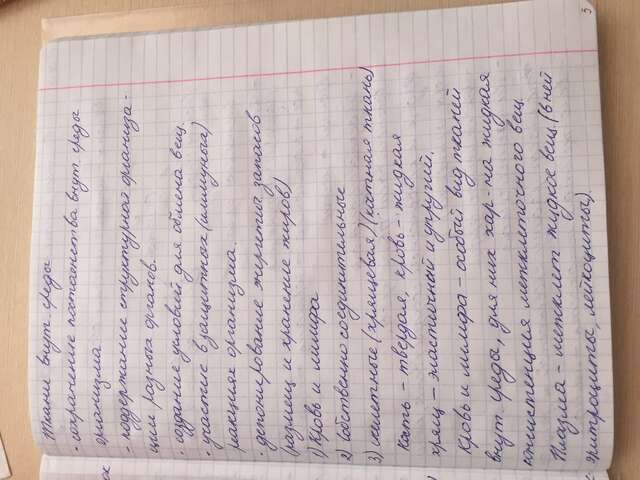 Ткани внут среды
- сохранение постоенства внут среды
организма
- поддержание структурной организа-
ции разных органов.
- создание условий для обмена вещ.
- участие в защитных (иммуных)
реакциях организма.
- депонирование энергетич запасов
(размещ и хранение жиров)
1) Кровь и лимфа
2) Собственно соединительные
3) скелетные (хрящевая) (костная ткань)
Кость - твердая, кровь - жидкая
хрящ - эластичный и упругий.
Кровь и лимфа - особый вид тканей
внут среды, для них хар-на жидкая
консистенция межклеточного вещ.
Плазма - межклет жидкое вещ. (в ней
эритроциты, лейкоциты).
3